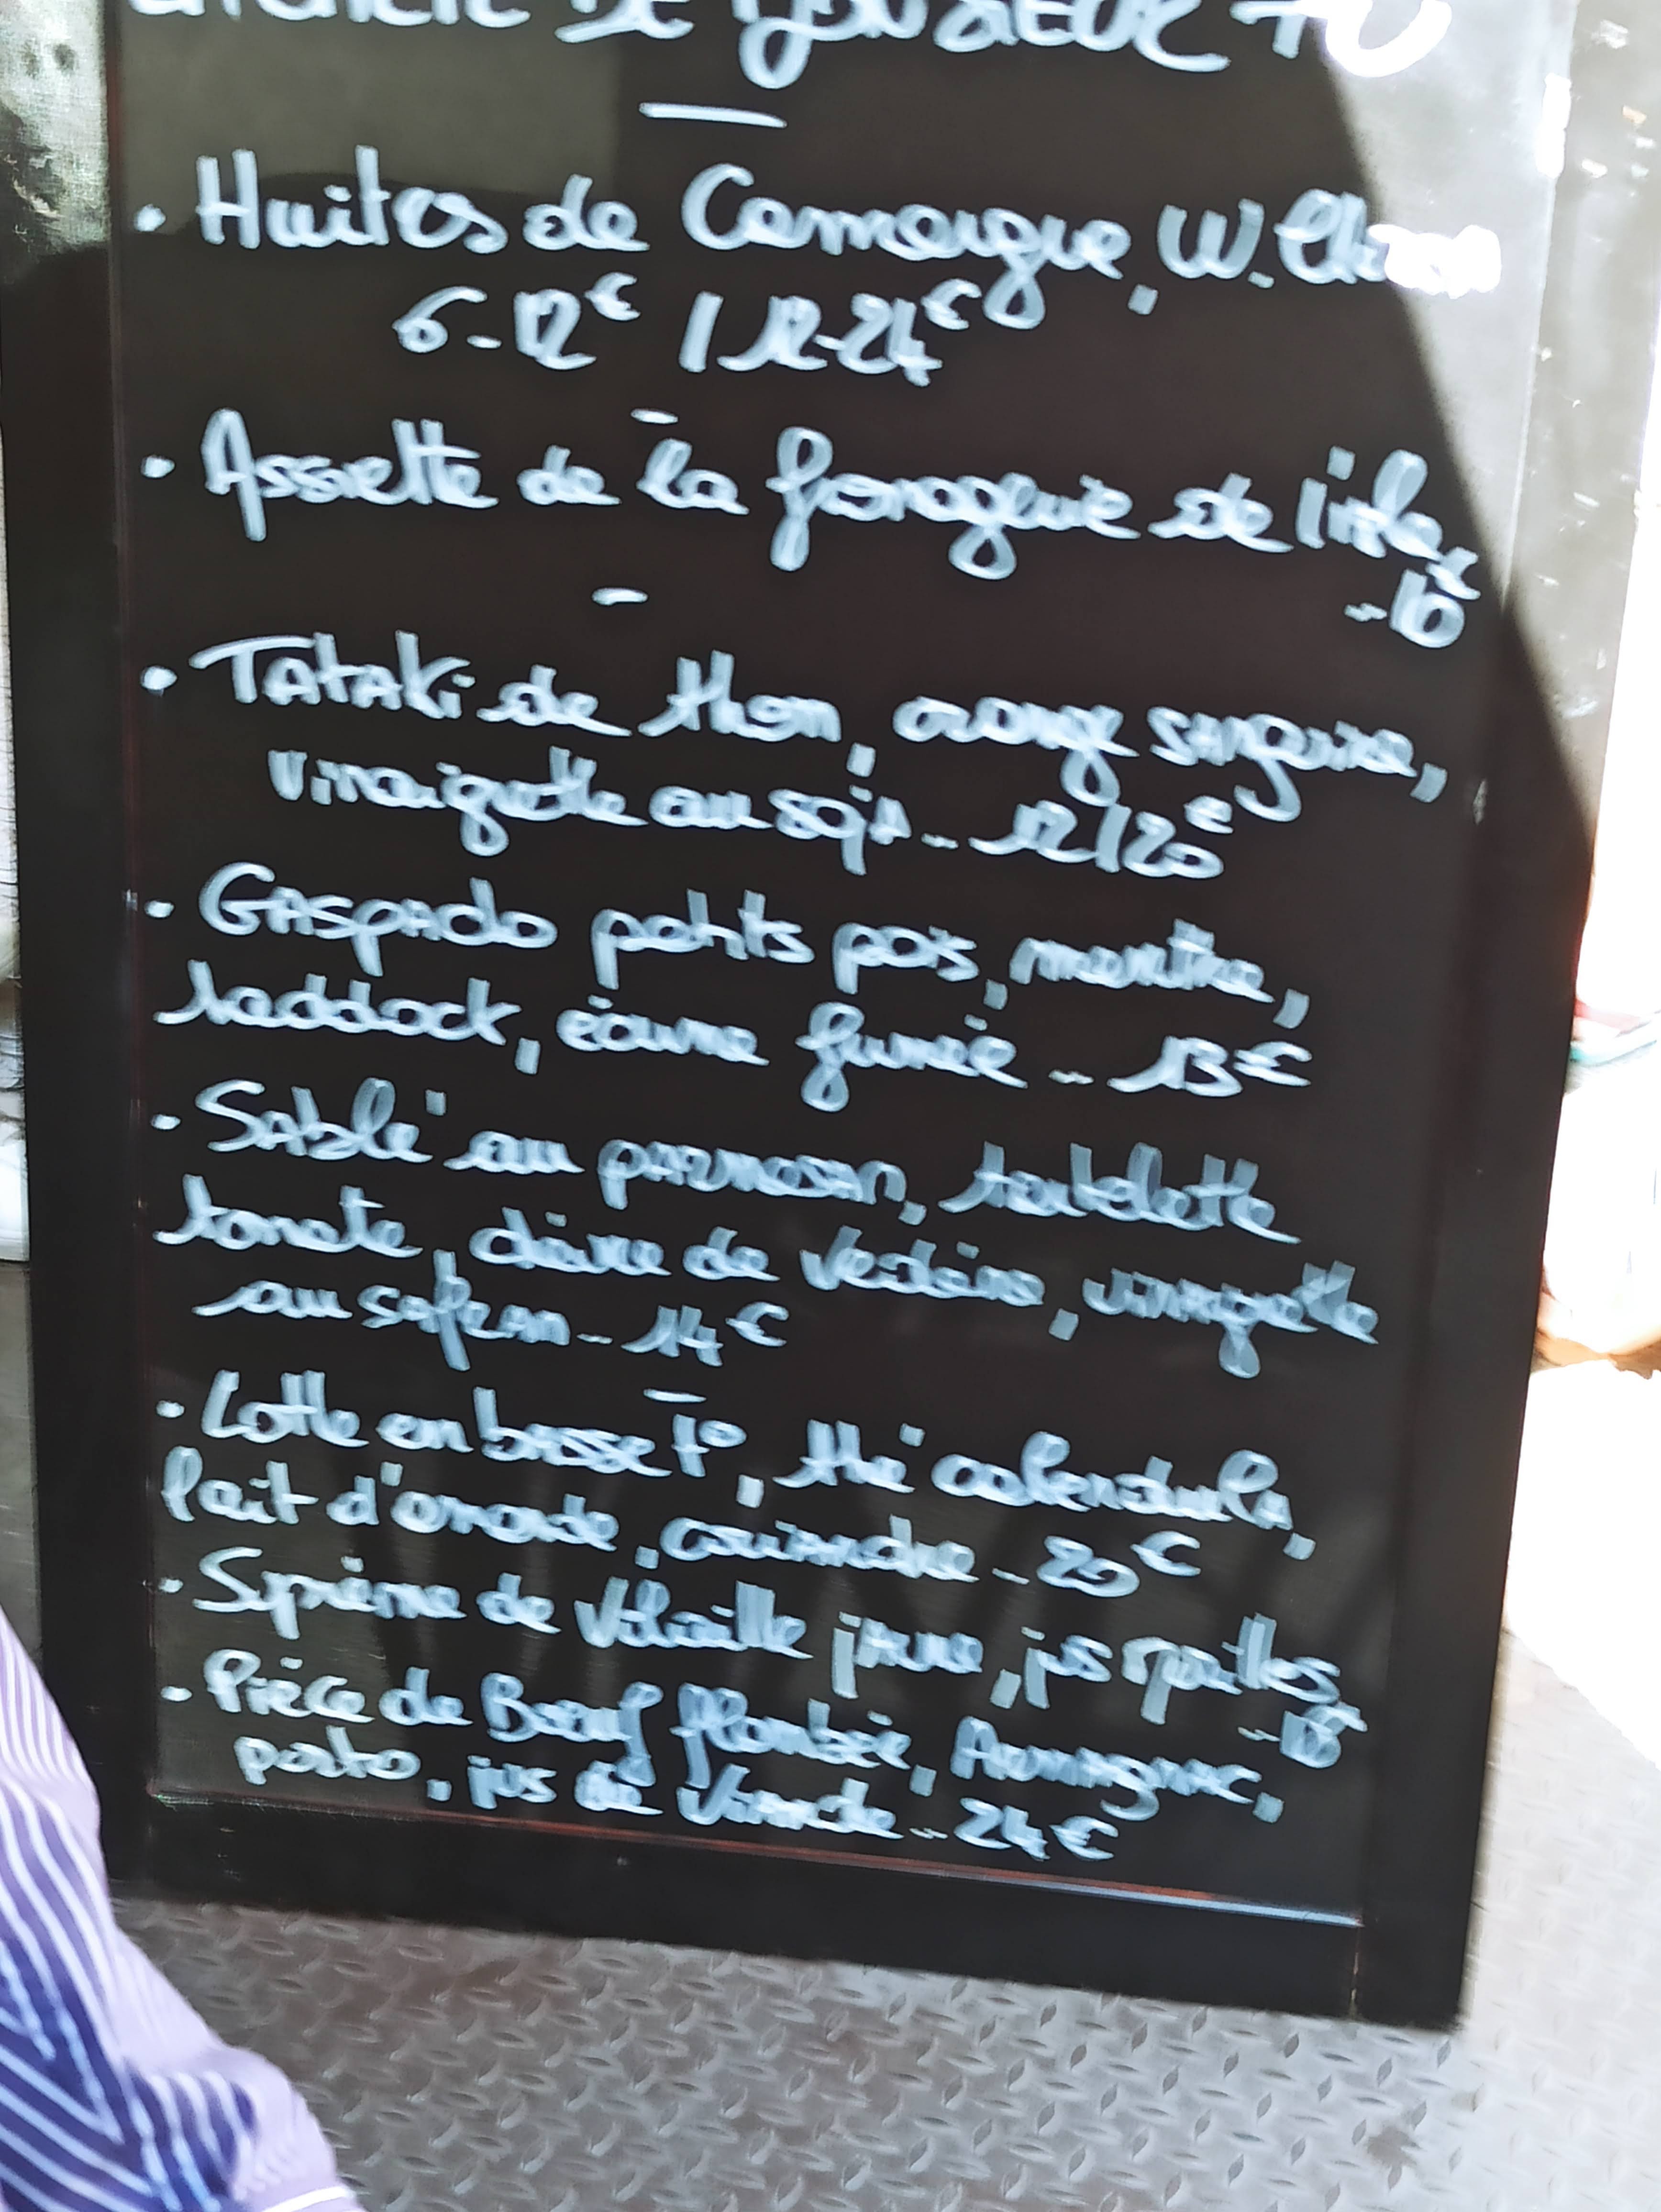 DE MONSIEUR
• Huitres de Camargue, W.
6-12€ / 12-24€
• Assiette de la fromagerie de l'isle,
• Tataki de thon, orange sanguine,
vinaigrette au soja.. 12/20€
• Gaspacho petits pois, menthe,
haddock, écume fumée.. 13€
• Sablé au parmesan, tartelette
tomate, de vinaigrette
au safran.. 14€
• Lotte en basse T°, thé calendula,
lait d'amande, coriandre.. 20€
• Suprème de Volaille jaune, jus
• Pièce de Boeuf flambée, Armagnac,
porto, jus de Viande.. 24€